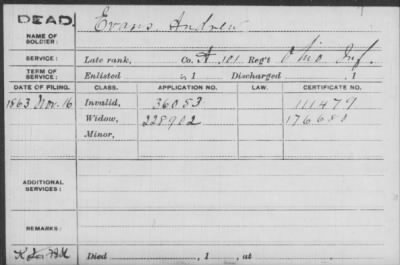 DEAD.
NAME OF SOLDIER: Evans, Andrew
SERVICE: Late rank, Co. A 101 Reg't Ohio Inf.
TERM OF SERVICE: Enlisted , 1 Discharged , 1
DATE OF FILING. CLASS. APPLICATION NO. LAW. CERTIFICATE NO.
1863 Nov. 16 Invalid, 36053 111479
Widow, 228902 176680
Minor,
ADDITIONAL SERVICES:
REMARKS:
Died , 1 , at